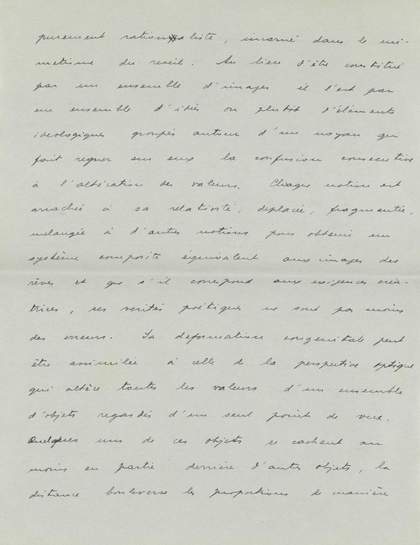 purement rationaliste, incarné dans le mi-
métisme du recueil. Au lieu d'être constitué
par un ensemble d'images il l'est par
un ensemble d'idées ou plutôt d'éléments
idéologiques groupés autour d'un noyau qui
fait régner sur eux la confusion consécutive
à l'altération des valeurs. Chaque notion est
arrachée à sa relativité, déplacée, fragmentée,
mélangée à d'autres notions pour obtenir un
système composite équivalent aux images des
rêves et que s'il correspond aux exigences créa-
trices, ses vérités poétiques ne sont pas moins
des erreurs. La déformation congénitale peut
être assimilée à celle de la perspective optique
qui altère toutes les valeurs d'un ensemble
d'objets regardés d'un seul point de vue.
Quelques uns de ces objets se cachent au
moins en partie derrière d'autres objets, la
distance bouleverse les proportions de manière